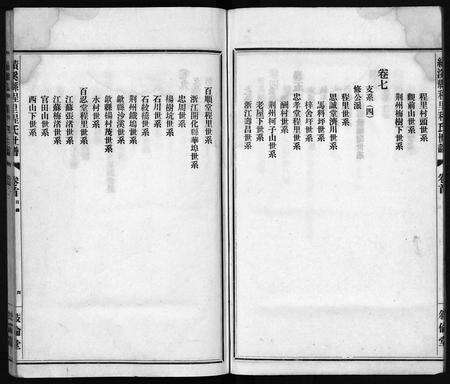 績溪縣程里程氏世譜
卷首
敍倫堂
程里村頭世系
觀前山世系
荆州梅樹下世系
卷七
支系（四）
修公派
程里世系
思誠堂濟川世系
馬料坪世系
梓舍圩世系
忠孝堂程里世系
荆州柯子山世系
胴村世系
老屋下世系
浙江壽昌世系
百順堂程里世系
浙江開化縣華埠世系
忠周世系
楊樹坑世系
石川世系
石紋樁世系
荆州鐵塢世系
歙縣沙溪世系
歙縣楊村茂世系
水村世系
百忍堂程里世系
江蘇張渚世系
江蘇梅渚世系
官田山世系
西山下世系
績溪縣程里程氏世譜
卷首
目錄
四
敍倫堂